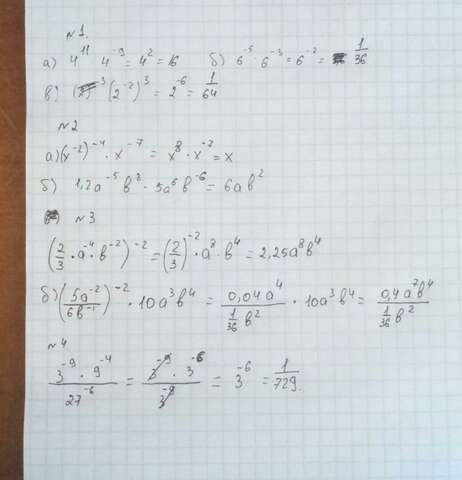 №1.
а) 4¹¹ · 4⁻⁹ = 4² = 16 б) 6⁻⁵ · 6⁻³ = 6⁻² = 1/36
в) (2⁻²)³ = 2⁻⁶ = 1/64
№2
а) (x⁻²)⁻⁴ · x⁻⁷ = x⁸ · x⁻⁷ = x
б) 1,2a⁻⁵b⁸ · 5a⁶b⁻⁶ = 6ab²
№3
(2/3 · a⁻⁴ · b⁻²)⁻² = (2/3)⁻² · a⁸ · b⁴ = 2,25a⁸b⁴
б) (5a⁻²/6b⁻¹)⁻² · 10a³b⁴ = 0,04a⁴/(1/36 b²) · 10a³b⁴ = 0,4a⁷b⁴/(1/36 b²)
№4
3⁻⁹ · 9⁻⁴/27⁻⁶ = 3⁻⁹ · 3⁻⁶/3⁻⁹ = 3⁻⁶ = 1/729.